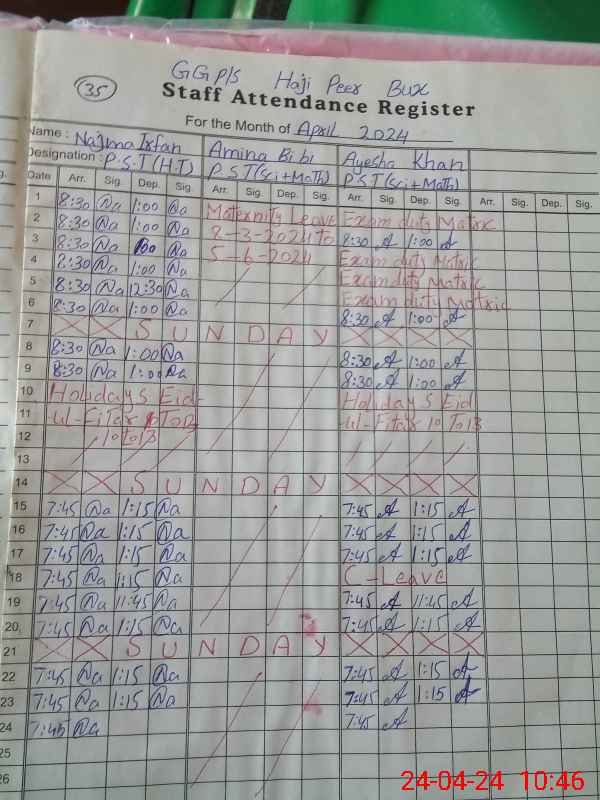 35
GGP/S Haji Peer Bux
Staff Attendance Register
For the Month of April 2024
Name: Najma Irfan Amina Bibi Ayesha Khan
Designation: P.S.T (H.T) P.S.T (Sci+Math) P.S.T (Sci+Math)
Date Arr. Sig. Dep. Sig. Arr. Sig. Dep. Sig. Arr. Sig. Dep. Sig. Arr. Sig. Dep. Sig.
1 8:30 Na 1:00 Na Maternity Leave Exam duty Matric
2 8:30 Na 1:00 Na 8-3-2024 to 8:30 A 1:00 A
3 8:30 Na 1:00 Na 5-6-2024 Exam duty Matric
4 8:30 Na 1:00 Na Exam duty Matric
5 8:30 Na 12:30 Na Exam duty Matric
6 8:30 Na 1:00 Na 8:30 A 1:00 A
7 X X S U N D A Y X X X X
8 8:30 Na 1:00 Na 8:30 A 1:00 A
9 8:30 Na 1:00 Na 8:30 A 1:00 A
10 Holidays Eid- Holidays Eid
11 ul-Fitar 10 To 13 -ul-Fitar 10 To 13
12 10 to 13
13
14 X X S U N D A Y X X X X
15 7:45 Na 1:15 Na 7:45 A 1:15 A
16 7:45 Na 1:15 Na 7:45 A 1:15 A
17 7:45 Na 1:15 Na 7:45 A 1:15 A
18 7:45 Na 1:15 Na C-Leave
19 7:45 Na 11:45 Na 7:45 A 11:45 A
20 7:45 Na 1:15 Na 7:45 A 1:15 A
21 X X S U N D A Y X X X X
22 7:45 Na 1:15 Na 7:45 A 1:15 A
23 7:45 Na 1:15 Na 7:45 A 1:15 A
24 7:45 Na 7:45 A
25
26
24-04-24 10:46